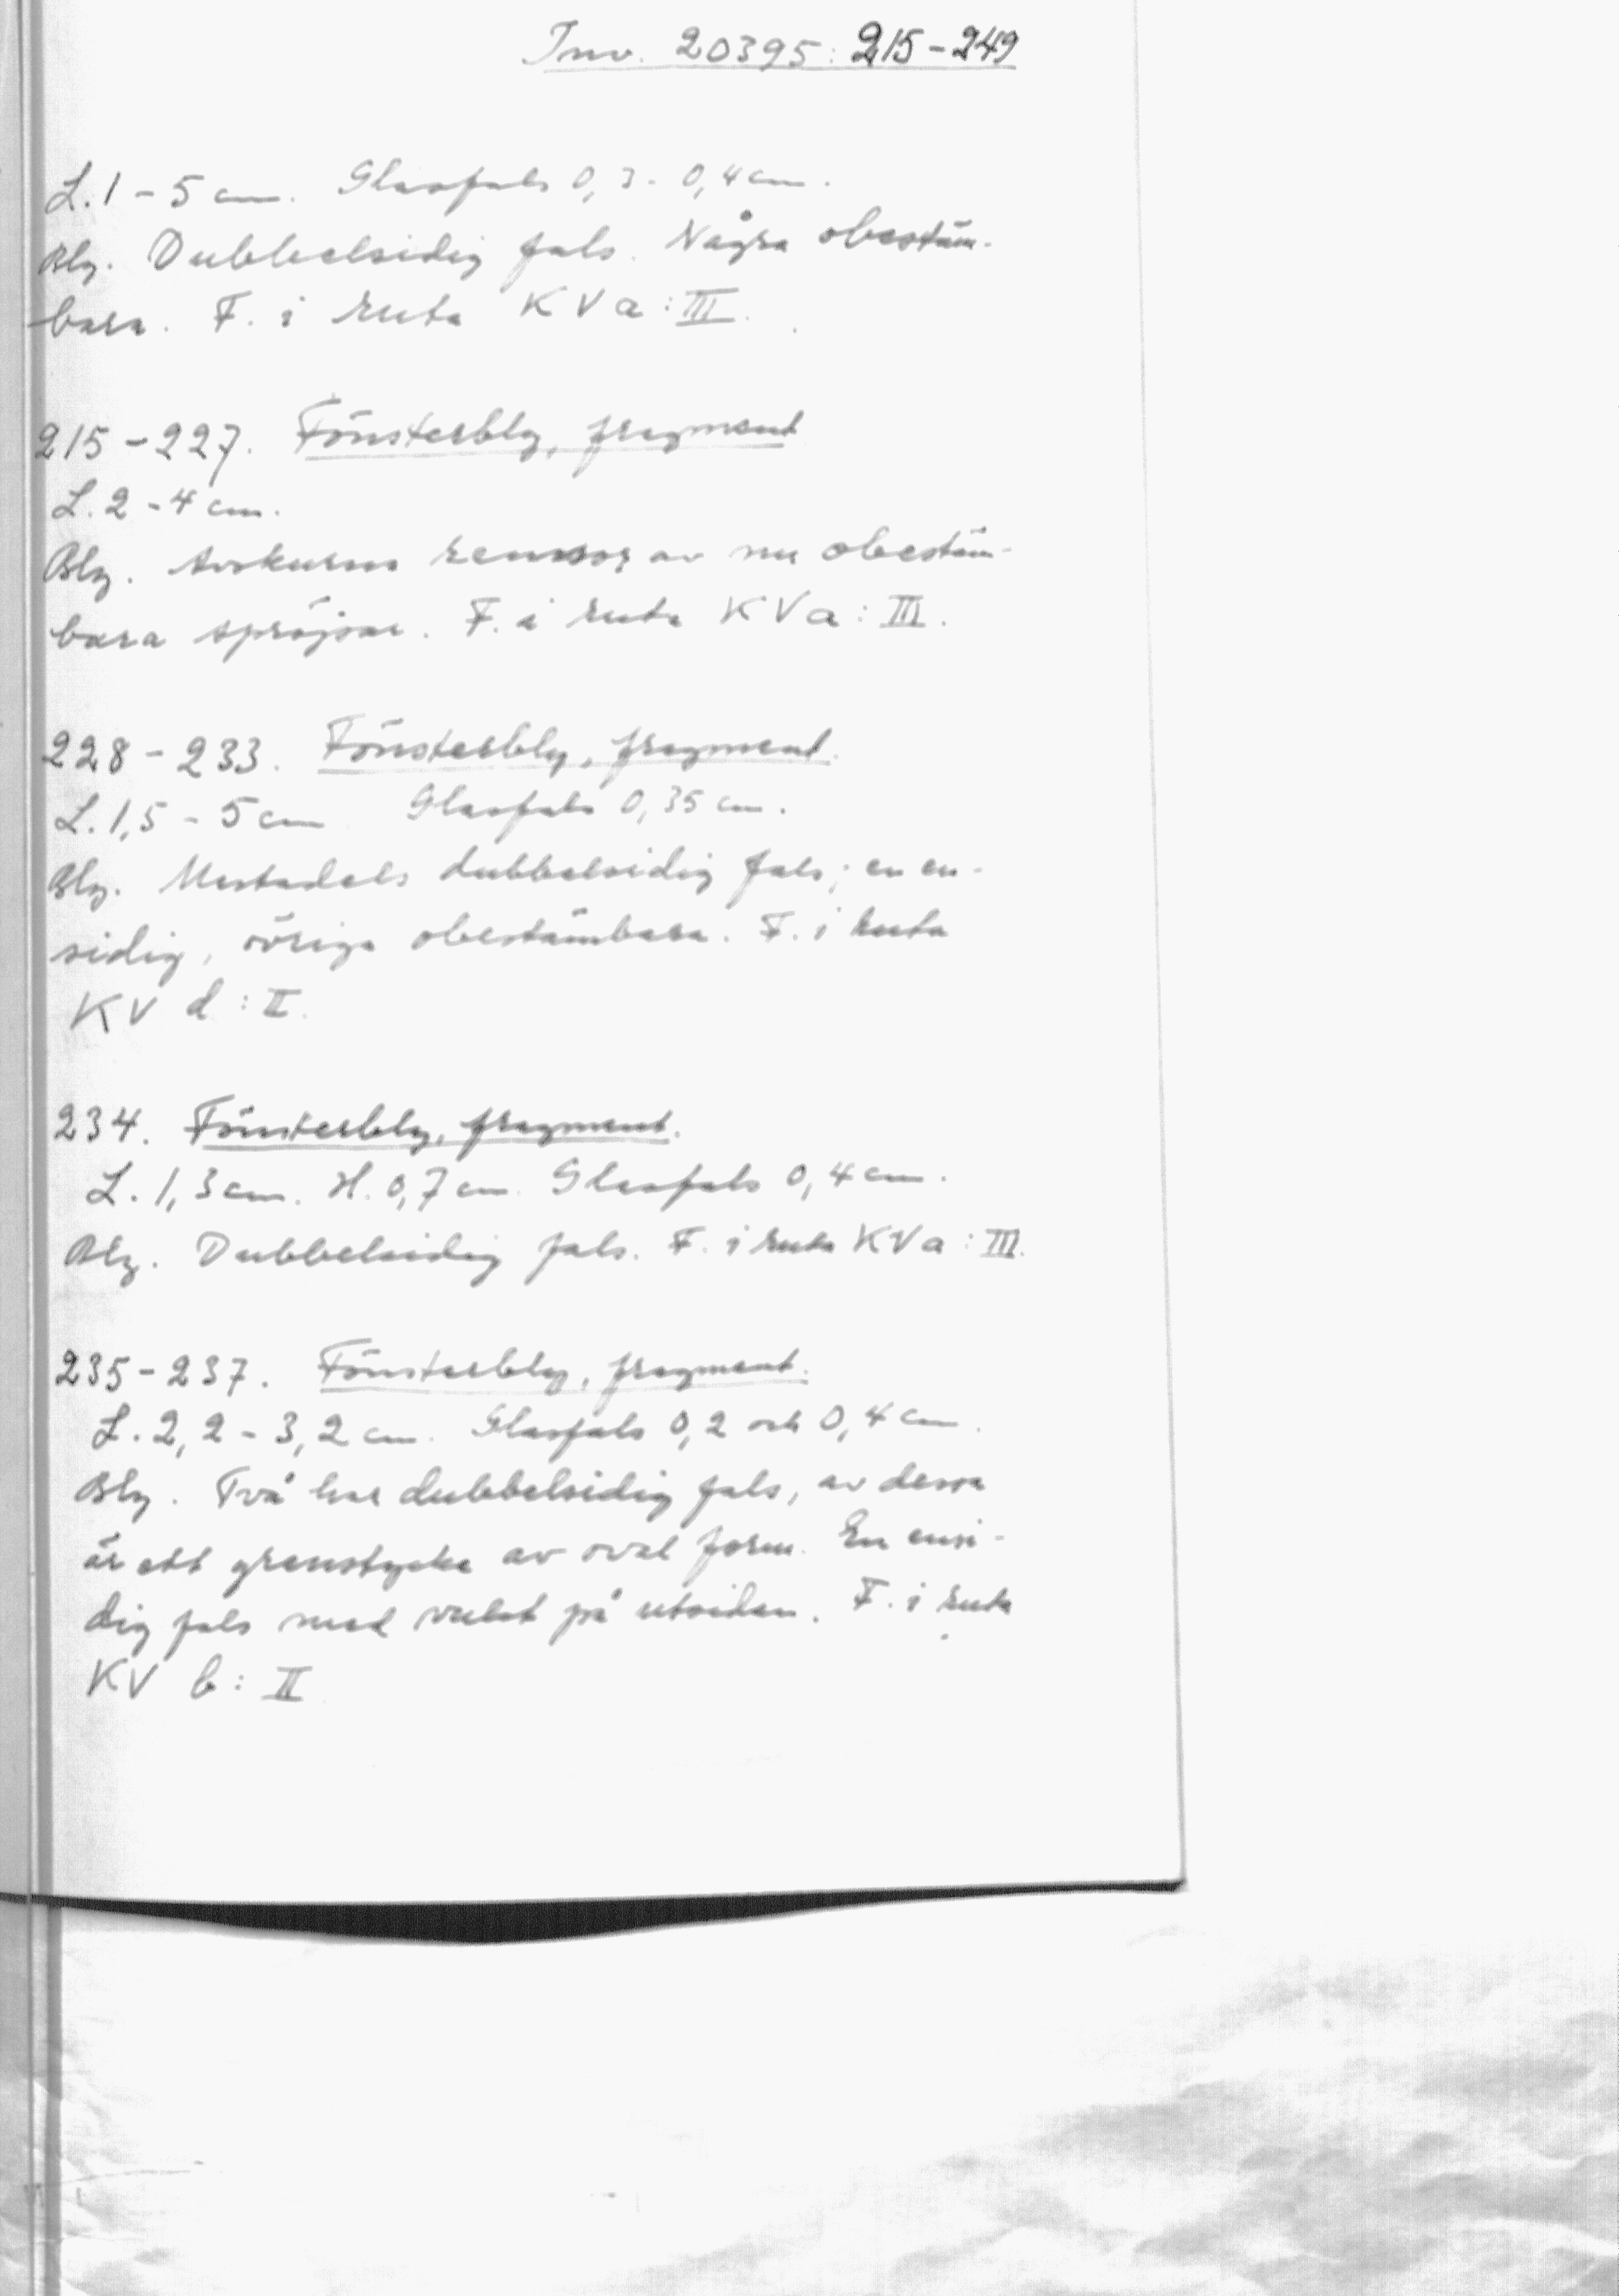 Inv. 20395: 215-249
L. 1 - 5 cm. Glasfals 0,3 - 0,4 cm.
Bly. Dubbelsidig fals. Några obestäm-
bara. F. i ruta KV a : III.
215-227. Fönsterbly, fragment
L. 2 - 4 cm.
Bly. Avskurna remsor av nu obestäm-
bara spröjsar. F. i ruta KV a : III.
228-233. Fönsterbly, fragment.
L. 1,5 - 5 cm Glasfals 0,35 cm.
Bly. Mestadels dubbelsidig fals; en en-
sidig, övriga obestämbara. F. i ruta
KV d : II.
234. Fönsterbly, fragment.
L. 1,3 cm. H. 0,7 cm. Glasfals 0,4 cm.
Bly. Dubbelsidig fals. F. i ruta KV a : III.
235-237. Fönsterbly, fragment.
L. 2,2 - 3,2 cm. Glasfals 0,2 och 0,4 cm.
Bly. Två har dubbelsidig fals, av dessa
är ett grenstycke av oval form. En ensi-
dig fals med vulst på utsidan. F. i ruta
KV b : II